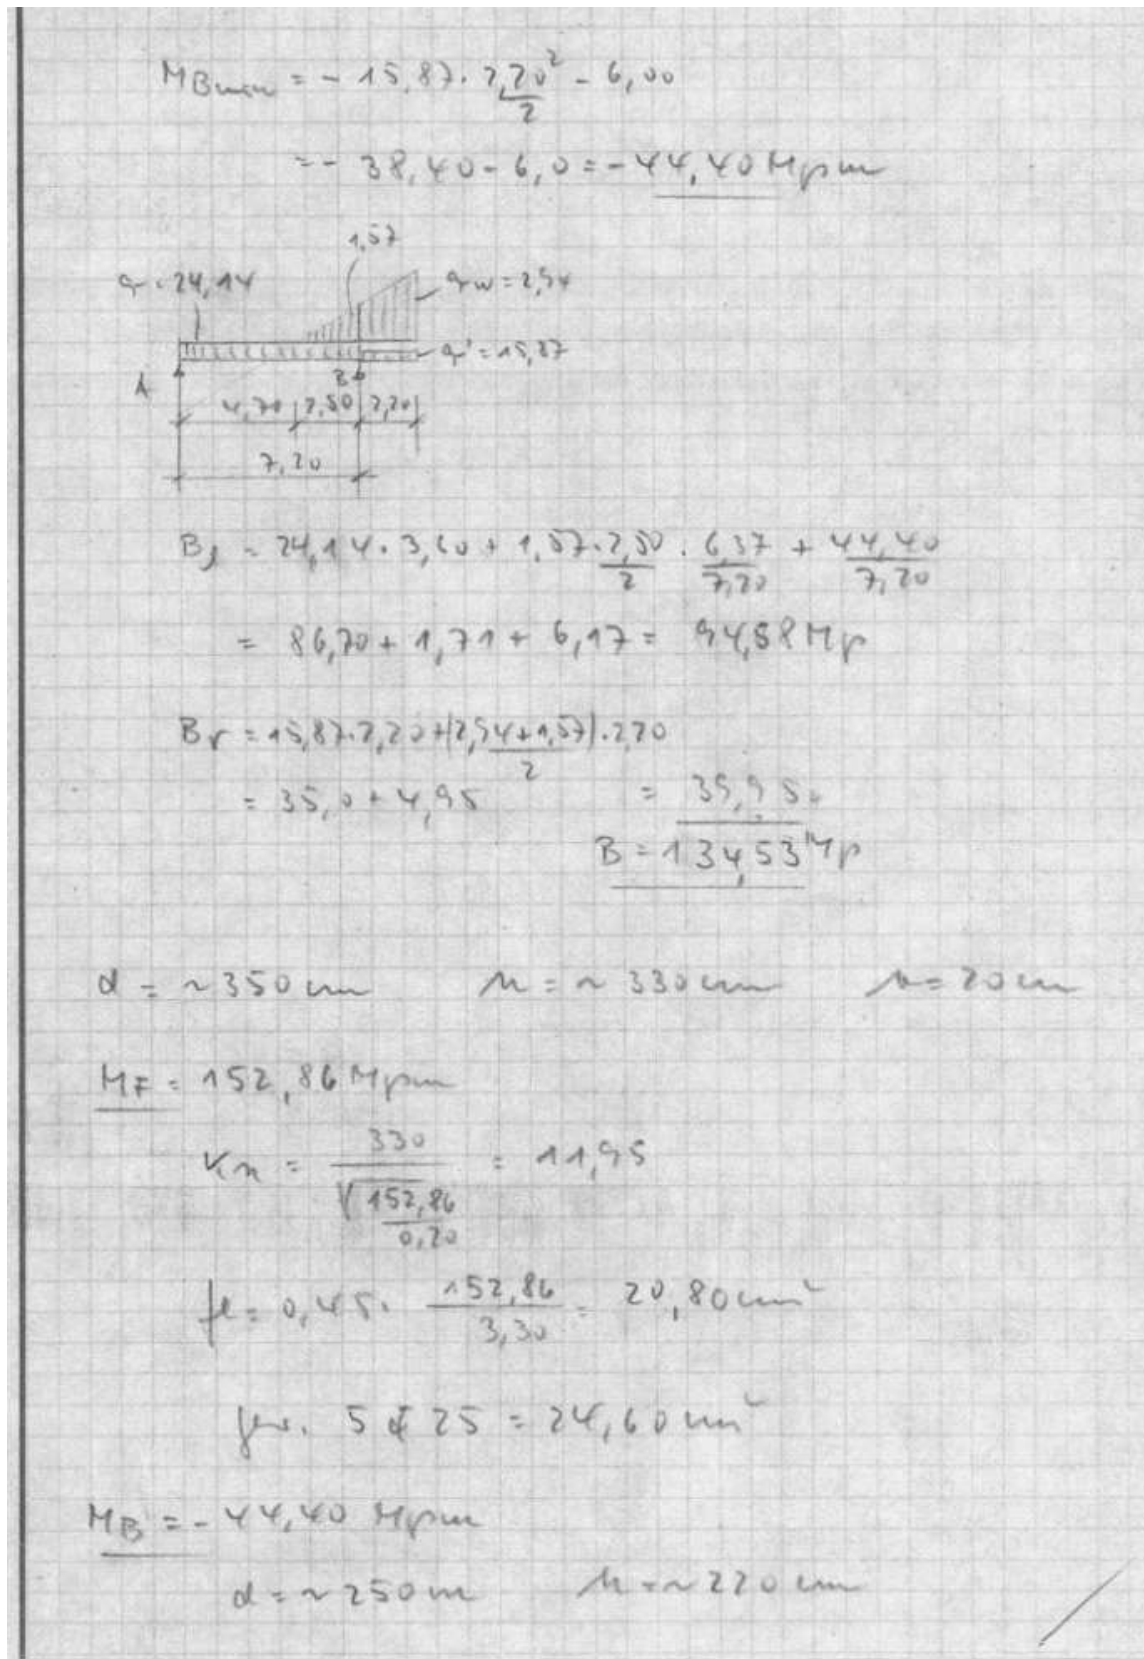 M Bmin = - 15,87 · 2,20² / 2 - 6,00
= - 38,40 - 6,0 = - 44,40 Mpm
1,57
q = 24,14
qw = 2,94
q' = 15,87
A
B
4,70 2,50 2,20
7,20
Bl = 24,14 · 3,60 + 1,57 · 2,50 / 2 · 6,37 / 7,20 + 44,40 / 7,20
= 86,70 + 1,71 + 6,17 = 94,58 Mp
Br = 15,87 · 2,20 + (2,94 + 1,57) / 2 · 2,20
= 35,0 + 4,95 = 39,95
B = 134,53 Mp
d = ~ 350 cm h = ~ 330 cm b = 20 cm
MF = 152,86 Mpm
kh = 330 / √ 152,86 / 0,20 = 11,95
fe = 0,45 · 152,86 / 3,30 = 20,80 cm²
gew. 5 ø 25 = 24,60 cm²
MB = - 44,40 Mpm
d = ~ 250 cm h = ~ 220 cm